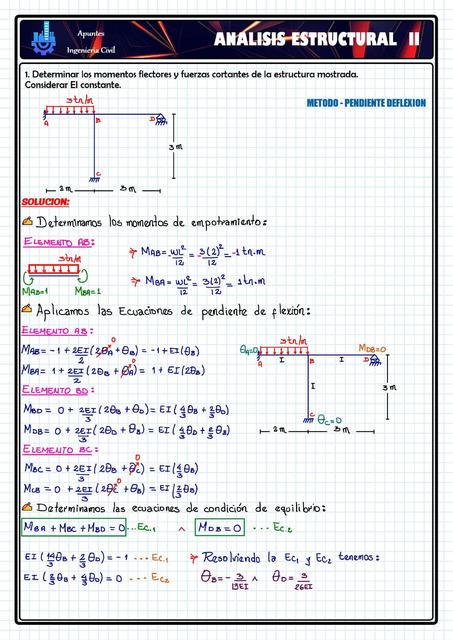 Apuntes
Ingeniería Civil
ANALISIS ESTRUCTURAL II
1. Determinar los momentos flectores y fuerzas cortantes de la estructura mostrada.
Considerar EI constante.
METODO - PENDIENTE DEFLEXION
3tn/m
A B D
3m
C
2m 3m
SOLUCION:
Determinamos los momentos de empotramiento:
ELEMENTO AB:
3tn/m
MAB=1 MBA=1
→ MAB = -WL²/12 = -3(2)²/12 = -1 tn.m
→ MBA = WL²/12 = 3(2)²/12 = 1tn.m
Aplicamos las Ecuaciones de pendiente de flexión:
ELEMENTO AB:
MAB = -1 + 2EI/2 (2θA + θB) = -1 + EI(θB)
MBA = 1 + 2EI/2 (2θB + θA) = 1 + EI(2θB)
ELEMENTO BD:
MBD = 0 + 2EI/3 (2θB + θD) = EI(4/3 θB + 2/3 θD)
MDB = 0 + 2EI/3 (2θD + θB) = EI(4/3 θD + 2/3 θB)
ELEMENTO BC:
MBC = 0 + 2EI/3 (2θB + θC) = EI(4/3 θB)
MCB = 0 + 2EI/3 (2θC + θB) = EI(2/3 θB)
3tn/m
θA=0 MDB=0
A I B I D
I
3m
C θC=0
2m 3m
Determinamos las ecuaciones de condición de equilibrio:
MBA + MBC + MBD = 0 ...Ec.1 ∧ MDB = 0 ...Ec.2
EI(14/3 θB + 2/3 θD) = -1 ... Ec.1
EI(2/3 θB + 4/3 θD) = 0 ... Ec2
→ Resolviendo la Ec1 y Ec2 tenemos:
θB = -3/13EI ∧ θD = 3/26EI